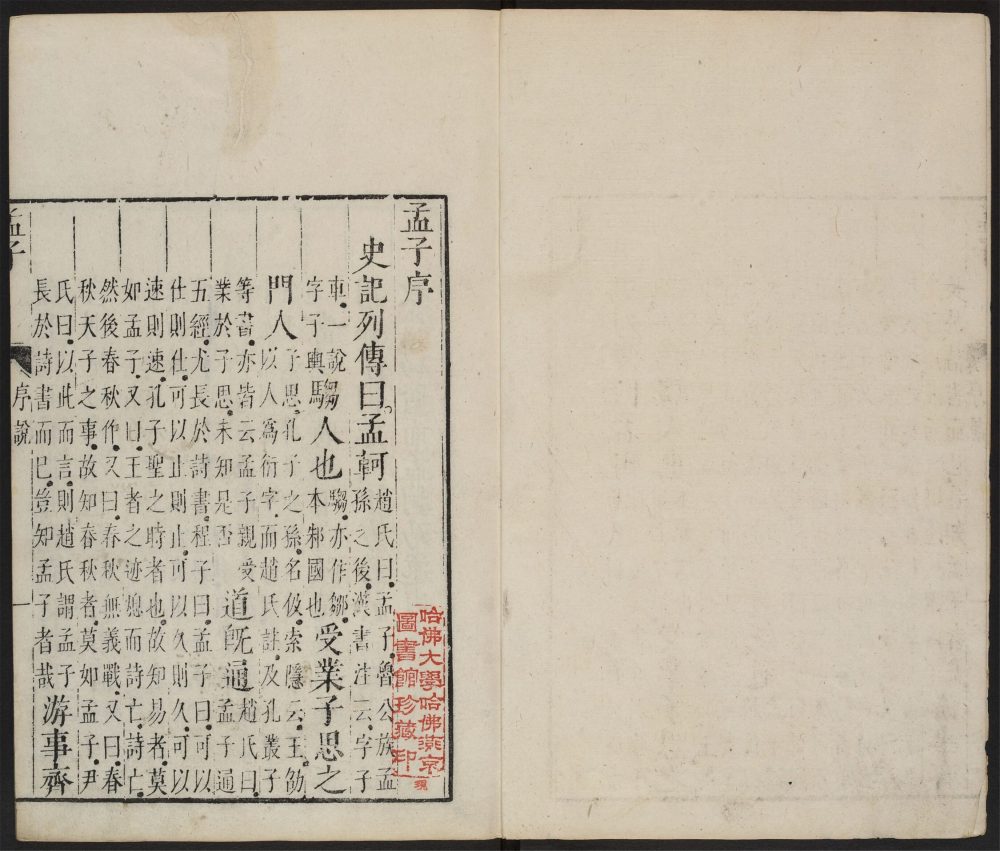 孟子序
史記列傳曰。孟軻
趙氏曰。孟子。魯公族孟
孫之後。漢書注云。字子
車。一說
字子輿。
騶人也
騶亦作鄒。
本邾國也
受業子思之
門人
子思。孔子之孫。名伋。索隱云。王劭
以人為衍字。而趙氏註。及孔叢子
等書。亦皆云孟子親受
業於子思。未知是否
道既通
趙氏曰。
孟子通
五經。尤長於詩書。程子曰。孟子曰。可以
仕則仕。可以止則止。可以久則久。可以
速則速。孔子聖之時者也。故知易者。莫
如孟子。又曰。王者之迹熄而詩亡。詩亡。
然後春秋作。又曰。春秋無義戰。又曰。春
秋天子之事。故知春秋者。莫如孟子。尹
氏曰。以此而言。則趙氏謂孟子
長於詩書而已。豈知孟子者哉
游事齊
孟子
序說
一
哈佛大學哈佛燕京
圖書館珍藏印
現